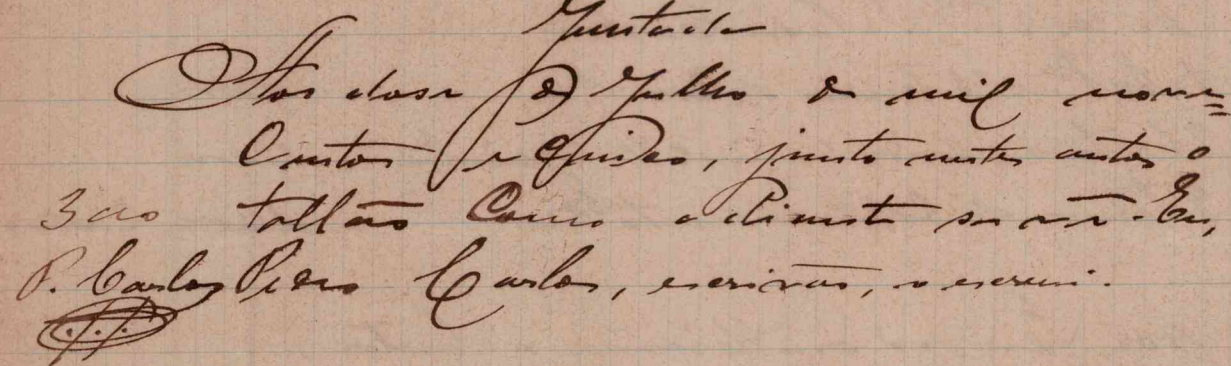 Juntada
Aos dose de Julho de mil nove=
centos e quinse, junto nestes autos o
tallão como adiante se vê. Eu,
Piero Carlos, escrivão, o escrevi.
300
P. Carlos